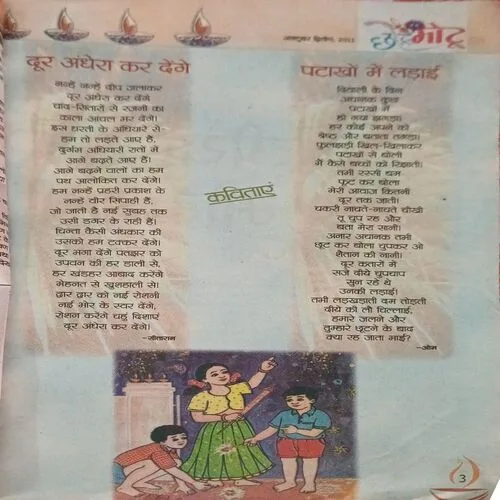 अक्टूबर द्वितीय, 2011
छोटू मोटू
दूर अंधेरा कर देंगे
नन्हें नन्हें दीप जलाकर
दूर अंधेरा कर देंगे
चांद-सितारों से रजनी का
काला आंचल भर देंगे।
इस धरती के अंधियारे से
हम तो लड़ते आए हैं।
दुर्गम अंधियारी रातों में
आगे बढ़ते आए हैं।
आगे बढ़ने वालों का हम
पथ आलोकित कर देंगे।
हम नन्हें प्रहरी प्रकाश के
नन्हें वीर सिपाही हैं,
जो जाती है नई सुबह तक
उसी डगर के राही हैं।
चिन्ता कैसी अंधकार की
उसको हम टक्कर देंगे।
दूर भगा देंगे पतझर को
उपवन की हर डाली से,
हर खंडहर आबाद करेंगे
मेहनत से खुशहाली से।
द्वार द्वार को नई रोशनी
नई भोर के स्वर देंगे,
रोशन करेंगे चहुं दिशाएं
दूर अंधेरा कर देंगे।
-सीताराम
कविताएं
पटाखों में लड़ाई
दिवाली के दिन
अचानक कुछ
पटाखों में
हो गया झगड़ा।
हर कोई अपने को
श्रेष्ठ और बताता तगड़ा।
फुलझड़ी खिल-खिलाकर
पटाखों से बोली
मैं कैसे बच्चों को रिझाती।
तभी रस्सी बम
फूट कर बोला
मेरी आवाज कितनी
दूर तक जाती।
चकरी नाचते-नाचते चीखी
तू चुप रह और
बता मेरा सानी।
अनार अचानक तभी
छूट कर बोला चुपकर ओ
शैतान की नानी।
दूर कतारों में
सजे दीये चुपचाप
सुन रहे थे
उनकी लड़ाई।
तभी लड़खड़ाती दम तोड़ती
दीये की लौ चिल्लाई,
हमारे जलने और
तुम्हारे छूटने के बाद
क्या रह जाता भाई?
-ओम
3